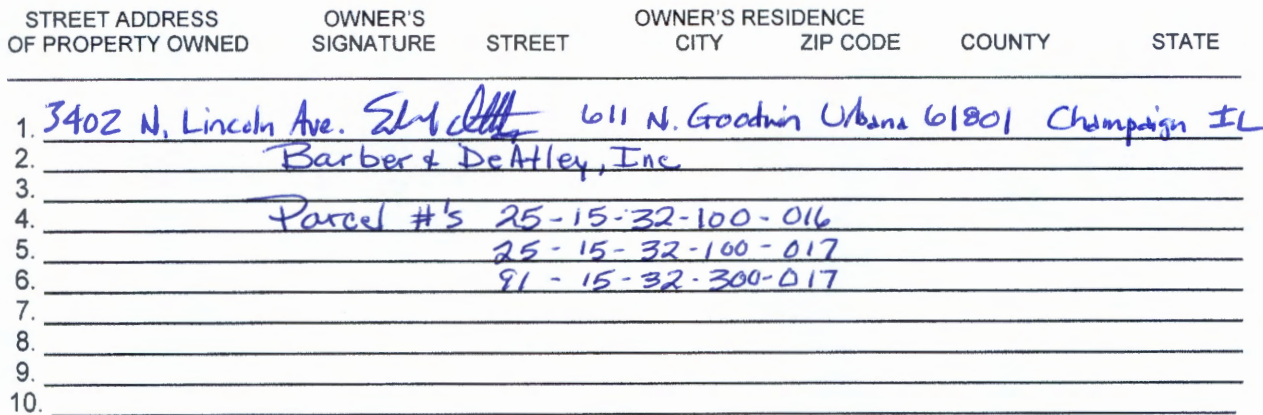 STREET ADDRESS OWNER'S OWNER'S RESIDENCE
OF PROPERTY OWNED SIGNATURE STREET CITY ZIP CODE COUNTY STATE
1. 3402 N. Lincoln Ave. 611 N. Goodwin Urbana 61801 Champaign IL
2. Barber & DeAtley, Inc
3.
4. Parcel #'s 25-15-32-100-016
5. 25-15-32-100-017
6. 91-15-32-300-017
7.
8.
9.
10.